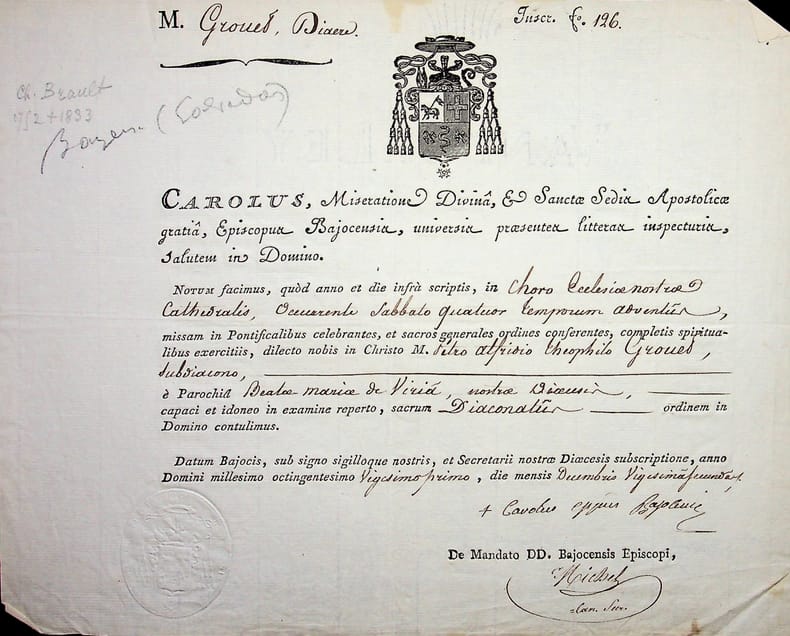 M. Groues, Diacre.
Inscr. fo. 126.
Ch. Brault
1752 + 1833
Bayeux (Calvados)
CAROLUS, Miseratione Divinâ, & Sanctæ Sedis Apostolicæ
gratiâ, Episcopus Bajocensis, universis præsentes litteras inspecturis,
salutem in Domino.
NOTUM facimus, quòd anno et die infrà scriptis, in Choro Ecclesiæ nostræ
Cathedralis, Occurente Sabbato quatuor temporum adventûs,
missam in Pontificalibus celebrantes, et sacros generales ordines conferentes, completis spiritua-
libus exercitiis, dilecto nobis in Christo M. Petro Theophilo Groues,
subdiacono,
è Parochiâ Beatæ mariæ de Viriâ, nostræ Diœcesis,
capaci et idoneo in examine reperto, sacrum Diaconatûs ordinem in
Domino contulimus.
Datum Bajocis, sub signo sigilloque nostris, et Secretarii nostræ Diœcesis subscriptione, anno
Domini millesimo octingentesimo Vigesimo primo, die mensis Decembris Vigesimâ secundâ.
+ Carolus eppus Bajocensis
De Mandato DD. Bajocensis Episcopi,
Michel
Can. Secr.